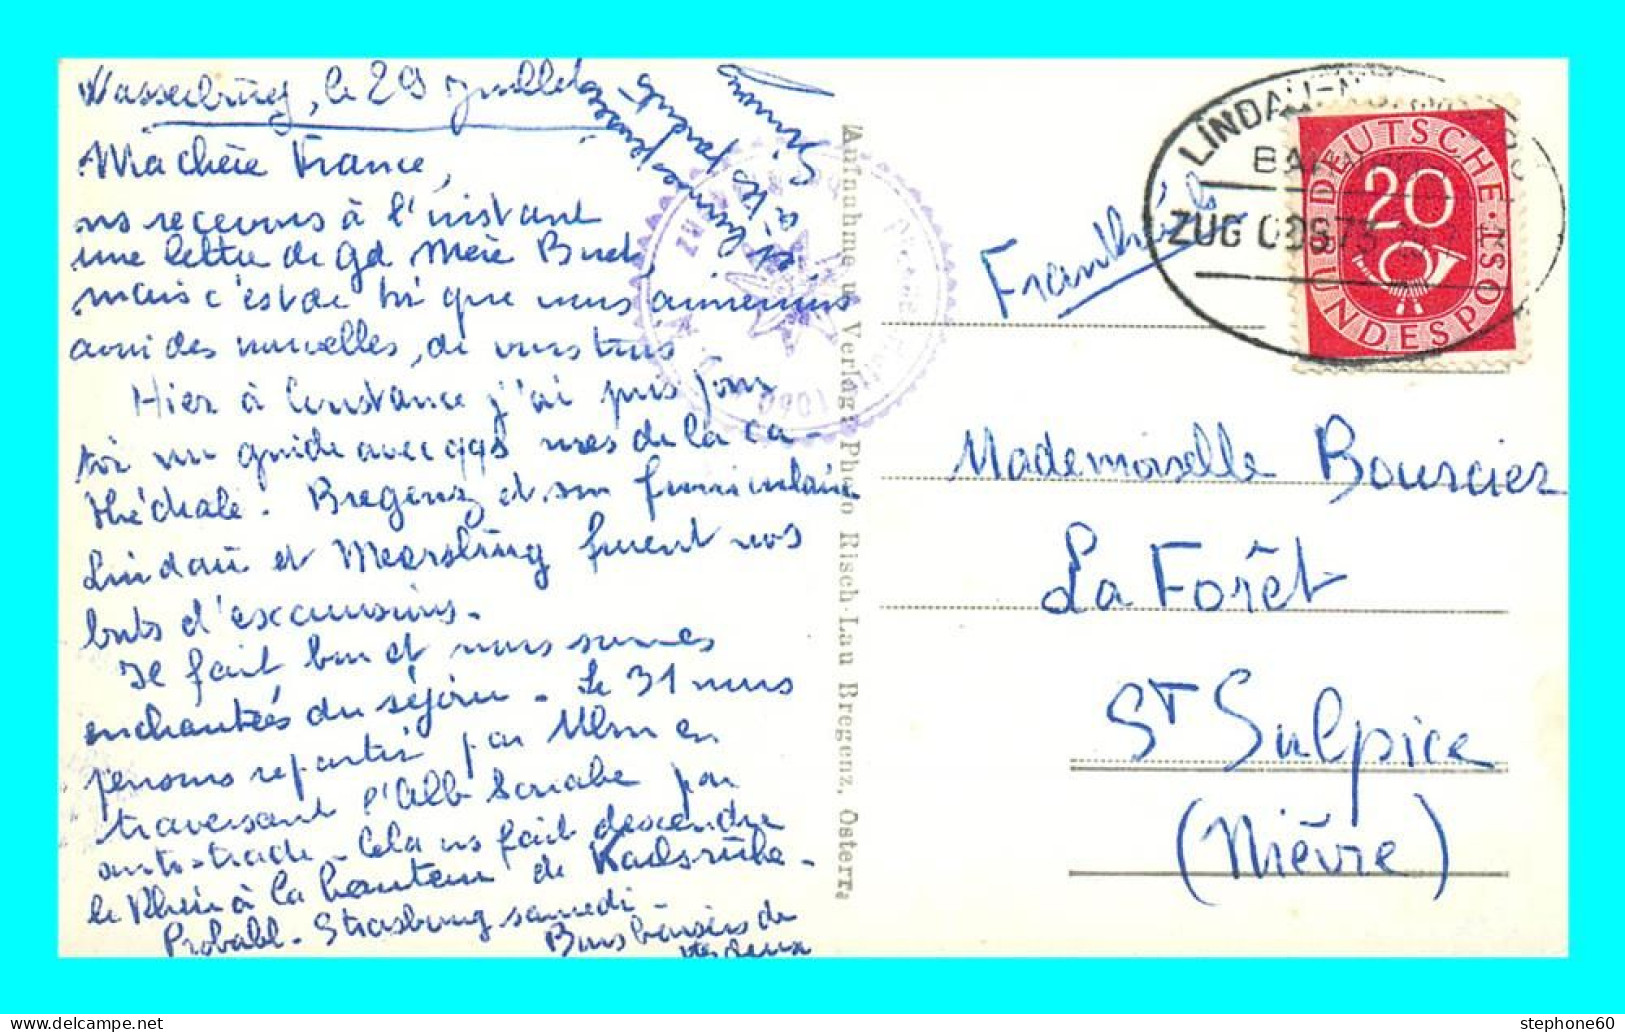 Wasserburg, le 29 Juillet
Ma chère France,
ns recevons à l'instant
une lettre de gd Mère
mais c'est de toi que nous aimerions
avoir des nouvelles, de vous tous
Hier à Constance j'ai pris pour
toi un guide avec qqs vues de la ca-
thédrale. Bregenz et son funiculaire
Lindau et Meersburg furent nos
buts d'excursions.
Il fait bon et nous sommes
enchantés du séjour. Le 31 nous
pensons repartir par Ulm en
traversant l'Alb Souabe par
auto-strade. Cela ns fait descendre
le Rhin à la hauteur de Karlsruhe.
Probabl. Strasbourg samedi.
Bons baisers de
ns deux
à tes parents
Aufnahme u. Verlag: Photo Risch-Lau Bregenz, Österr.
LINDAU-
ZUG
DEUTSCHE BUNDESPOST
20
Mademoiselle Bourcier
La Forêt
St Sulpice
(Nièvre)
stephone60